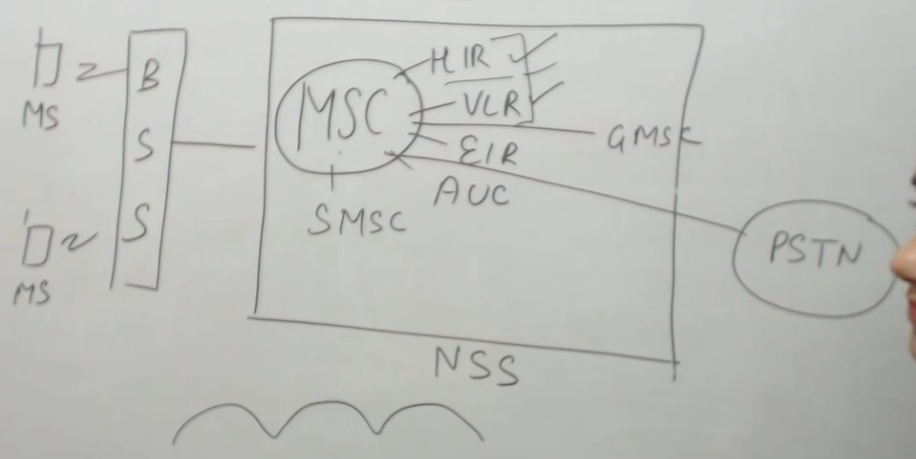 MS
B
S
S
MS
MSC
HIR
VLR
EIR
AUC
SMSC
GMSC
PSTN
NSS